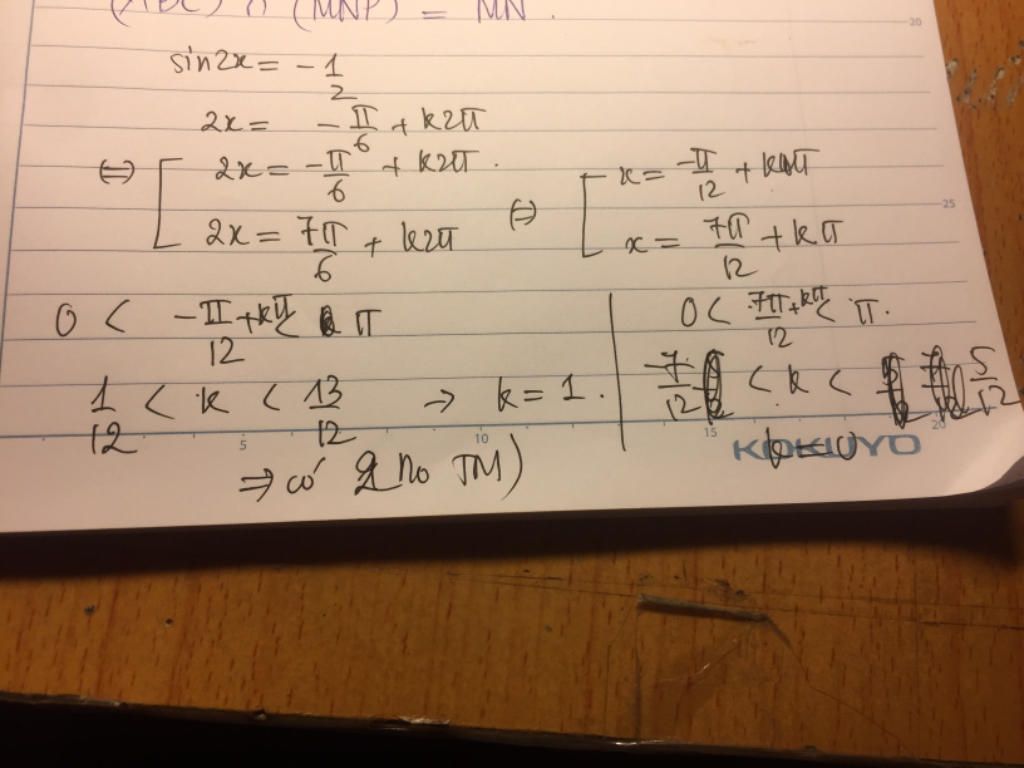 (ABC) ∩ (MNP) = MN.
20
sin2x = -1/2
2x = -π/6 + k2π
⇔ [ 2x = -π/6 + k2π.
2x = 7π/6 + k2π
⇔ [ x = -π/12 + kπ
25
x = 7π/12 + kπ
0 < -π/12 + kπ < π
1/12 < k < 13/12 → k = 1.
0 < 7π/12 + kπ < π.
-7/12 < k < 5/12
k = 0
5 10 15 20
KOKUYO
⇒ có 2 no TM)